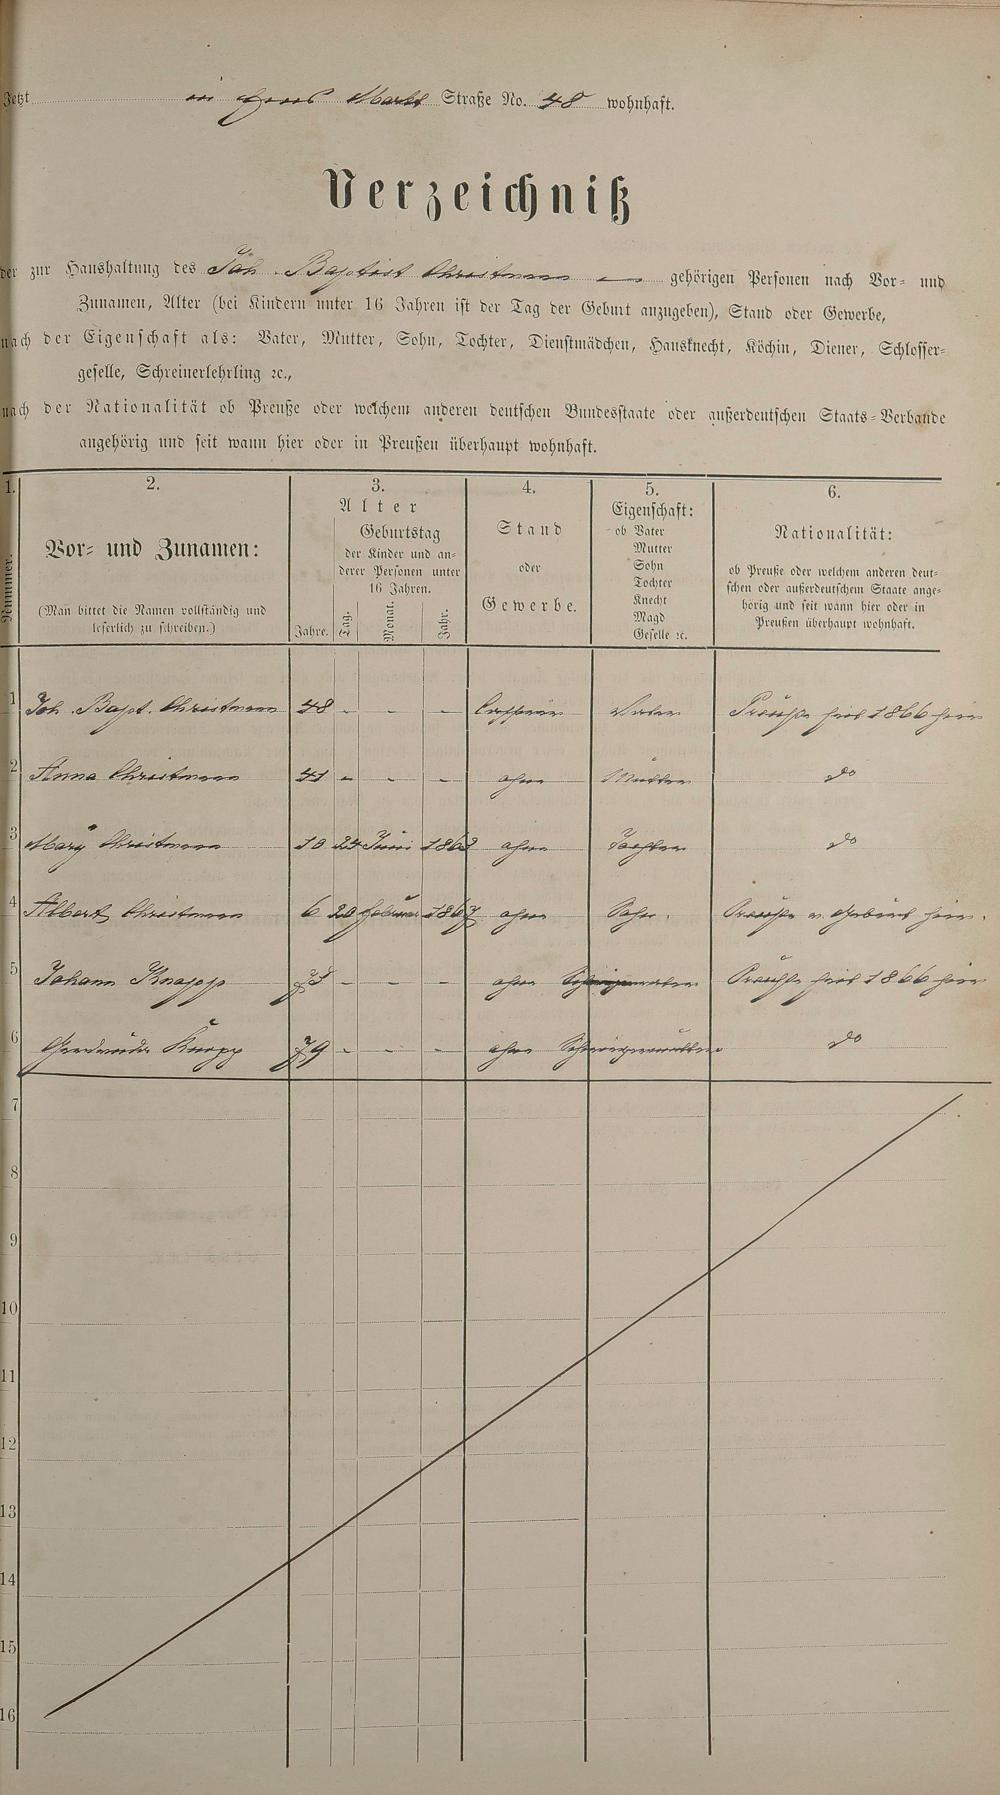 Jetzt in Ems Markt Straße No. 48 wohnhaft.
Verzeichniß
der zur Haushaltung des Joh. Baptist Christmann gehörigen Personen nach Vor- und
Zunamen, Alter (bei Kindern unter 16 Jahren ist der Tag der Geburt anzugeben), Stand oder Gewerbe,
nach der Eigenschaft als: Vater, Mutter, Sohn, Tochter, Dienstmädchen, Hausknecht, Köchin, Diener, Schlosser-
geselle, Schreinerlehrling ꝛc.,
nach der Nationalität ob Preuße oder welchem anderen deutschen Bundesstaate oder außerdeutschen Staats-Verbande
angehörig und seit wann hier oder in Preußen überhaupt wohnhaft.
1. 2. 3. 4. 5. 6.
Nummer.
Vor- und Zunamen:
(Man bittet die Namen vollständig und
leserlich zu schreiben.)
Alter
Jahre.
Geburtstag
der Kinder und an-
derer Personen unter
16 Jahren.
Tag. Monat. Jahr.
Stand
oder
Gewerbe.
Eigenschaft:
ob Vater
Mutter
Sohn
Tochter
Knecht
Magd
Geselle ꝛc.
Nationalität:
ob Preuße oder welchem anderen deut-
schen oder außerdeutschem Staate ange-
hörig und seit wann hier oder in
Preußen überhaupt wohnhaft.
1 Joh. Bapt. Christmann 48 - - - Vater Preuße seit 1866 hier
2 Anna Christmann 41 - - - ohne Mutter do
3 Mary Christmann 10 24 Juni 1863 ohne Tochter do
4 Albert Christmann 6 20 Februar 1867 ohne Sohn. Preuße v. Geburt hier.
5 Johann Knapp - - - ohne Schwiegervater Preuße seit 1866 hier
6 Knapp 79 - - - ohne Schwiegermutter do
7
8
9
10
11
12
13
14
15
16